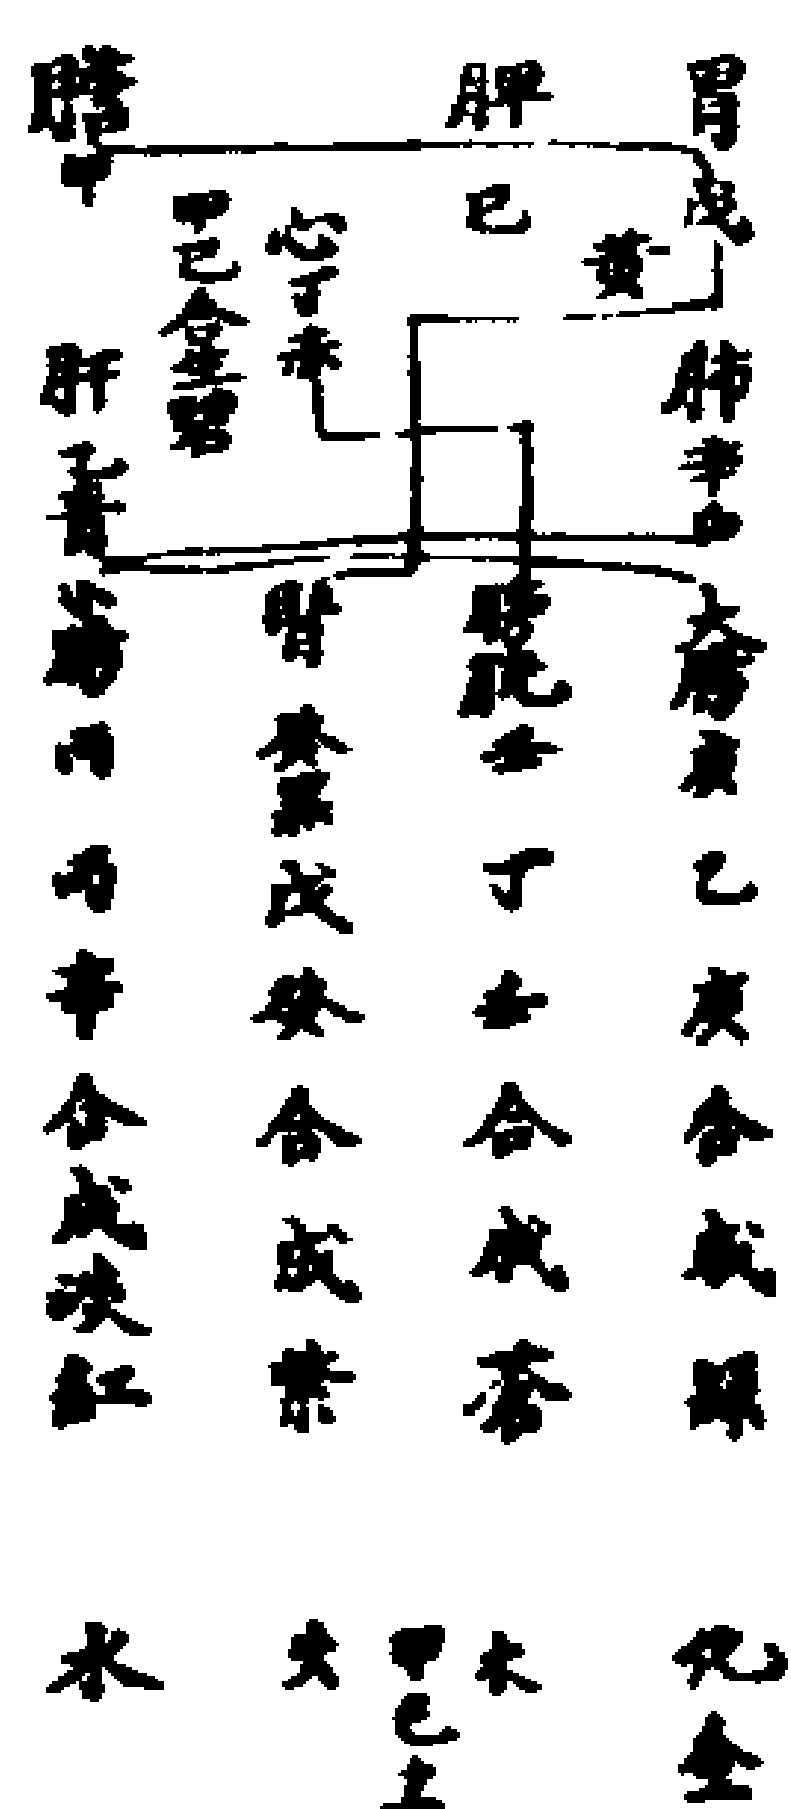 胃
戊
黃
肺
辛
白
大腸
庚
乙
庚
合
成
綠
化
金
脾
己
膀胱
壬
丁
壬
合
成
蒼
木
甲
己
土
心丁赤
腎
癸黑
戊
癸
合
成
紫
火
甲己合生
膽
甲
肝
乙青
小腸
丙
丙
辛
合
成
淡
紅
水